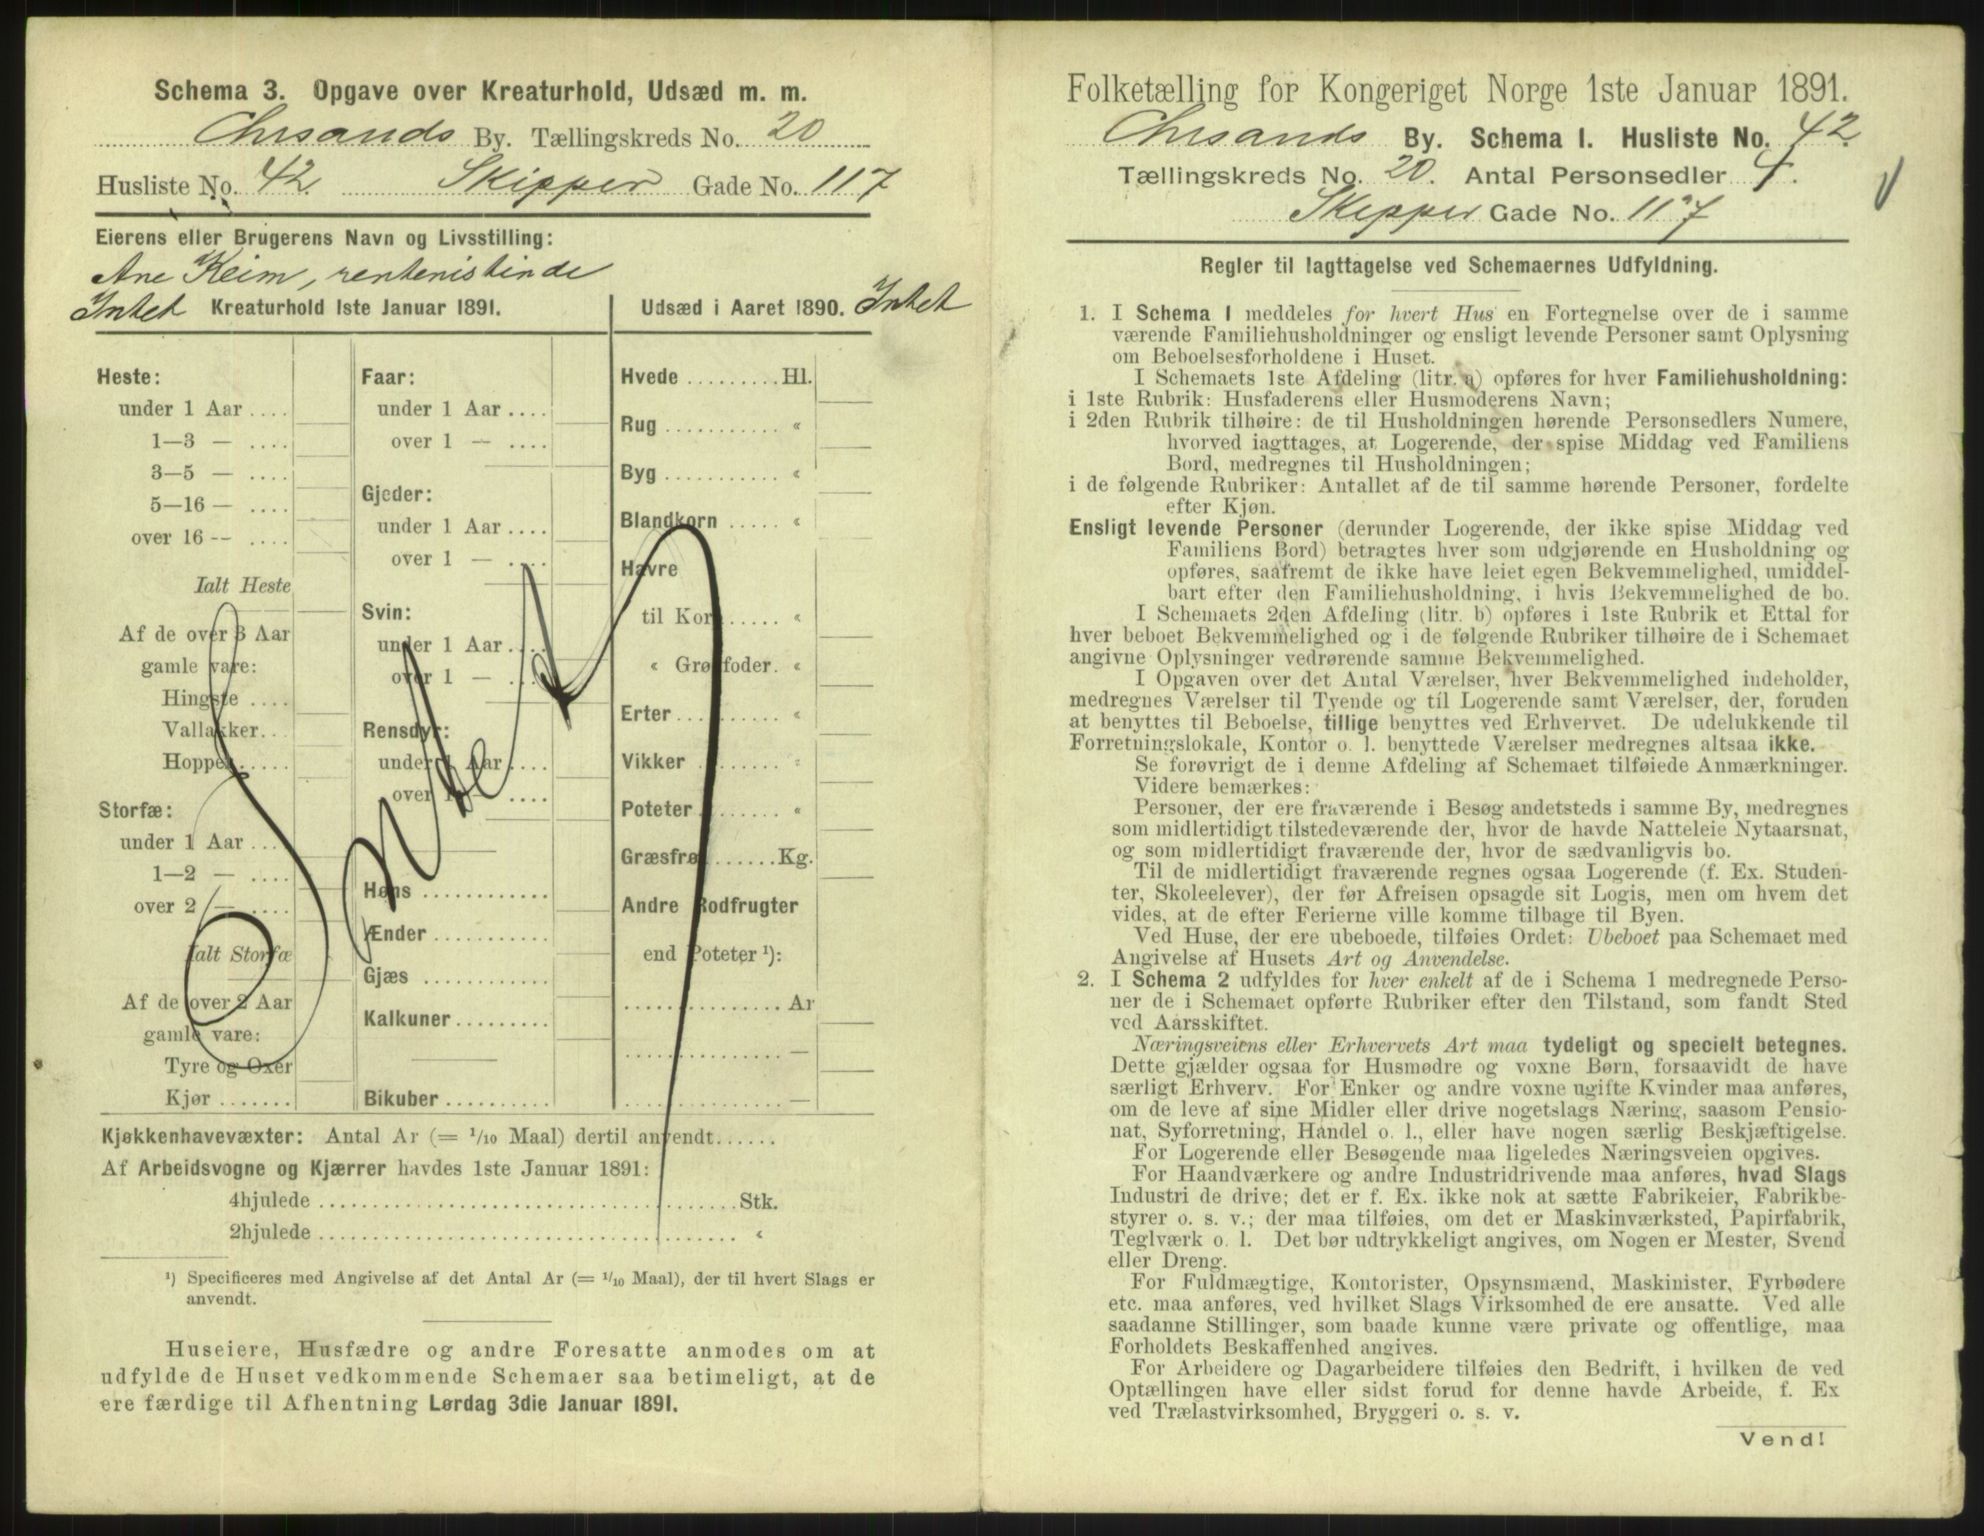 Schema 3. Opgave over Kreaturhold, Udsæd m. m.
Chrsands By. Tællingskreds No. 20
Husliste No. 42 Skipper Gade No. 117
Eierens eller Brugerens Navn og Livsstilling:
Ane Keim, rentenistinde
Intet Kreaturhold 1ste Januar 1891.
Udsæd i Aaret 1890. Intet
Heste:
under 1 Aar ....
1—3 — ....
3—5 — ....
5—16 — ....
over 16 — ....
Ialt Heste
Af de over 3 Aar
gamle vare:
Hingste ....
Vallakker...
Hopper.....
Storfæ:
under 1 Aar ....
1—2 — ....
over 2 — ....
Ialt Storfæ
Af de over 2 Aar
gamle vare:
Tyre og Oxer
Kjør .......
Faar:
under 1 Aar ....
over 1 — ....
Gjeder:
under 1 Aar ....
over 1 — ....
Svin:
under 1 Aar ....
over 1 — ....
Rensdyr:
under 1 Aar ....
over 1 — ....
Høns ............
Ænder ...........
Gjæs ............
Kalkuner.........
Bikuber ..........
Hvede .........Hl.
Rug ........... «
Byg ........... «
Blandkorn ..... «
Havre
til Korn ..... «
« Grønfoder. «
Erter.......... «
Vikker ........ «
Poteter ....... «
Græsfrø .......Kg.
Andre Rodfrugter
end Poteter ¹):
............... Ar
............... —
............... —
Kjøkkenhavevæxter: Antal Ar (= 1/10 Maal) dertil anvendt......
Af Arbeidsvogne og Kjærrer havdes 1ste Januar 1891:
4hjulede .......................................Stk.
2hjulede ....................................... «
¹) Specificeres med Angivelse af det Antal Ar (= 1/10 Maal), der til hvert Slags er
anvendt.
Huseiere, Husfædre og andre Foresatte anmodes om at
udfylde de Huset vedkommende Schemaer saa betimeligt, at de
ere færdige til Afhentning Lørdag 3die Januar 1891.
Folketælling for Kongeriget Norge 1ste Januar 1891.
Chrsands By. Schema I. Husliste No. 42
Tællingskreds No. 20. Antal Personsedler 4.
Skipper Gade No. 117
Regler til Iagttagelse ved Schemaernes Udfyldning.
1. I Schema I meddeles for hvert Hus en Fortegnelse over de i samme
værende Familiehusholdninger og ensligt levende Personer samt Oplysning
om Beboelsesforholdene i Huset.
I Schemaets 1ste Afdeling (litr. a) opføres for hver Familiehusholdning:
i 1ste Rubrik: Husfaderens eller Husmoderens Navn;
i 2den Rubrik tilhøire: de til Husholdningen hørende Personsedlers Numere,
hvorved iagttages, at Logerende, der spise Middag ved Familiens
Bord, medregnes til Husholdningen;
i de følgende Rubriker: Antallet af de til samme hørende Personer, fordelte
efter Kjøn.
Ensligt levende Personer (derunder Logerende, der ikke spise Middag ved
Familiens Bord) betragtes hver som udgjørende en Husholdning og
opføres, saafremt de ikke have leiet egen Bekvemmelighed, umiddel-
bart efter den Familiehusholdning, i hvis Bekvemmelighed de bo.
I Schemaets 2den Afdeling (litr. b) opføres i 1ste Rubrik et Ettal for
hver beboet Bekvemmelighed og i de følgende Rubriker tilhøire de i Schemaet
angivne Oplysninger vedrørende samme Bekvemmelighed.
I Opgaven over det Antal Værelser, hver Bekvemmelighed indeholder,
medregnes Værelser til Tyende og til Logerende samt Værelser, der, foruden
at benyttes til Beboelse, tillige benyttes ved Erhvervet. De udelukkende til
Forretningslokale, Kontor o. l. benyttede Værelser medregnes altsaa ikke.
Se forøvrigt de i denne Afdeling af Schemaet tilføiede Anmærkninger.
Videre bemærkes:
Personer, der ere fraværende i Besøg andetsteds i samme By, medregnes
som midlertidigt tilstedeværende der, hvor de havde Natteleie Nytaarsnat,
og som midlertidigt fraværende der, hvor de sædvanligvis bo.
Til de midlertidigt fraværende regnes ogsaa Logerende (f. Ex. Studen-
ter, Skoleelever), der før Afreisen opsagde sit Logis, men om hvem det
vides, at de efter Ferierne ville komme tilbage til Byen.
Ved Huse, der ere ubeboede, tilføies Ordet: Ubeboet paa Schemaet med
Angivelse af Husets Art og Anvendelse.
2. I Schema 2 udfyldes for hver enkelt af de i Schema 1 medregnede Perso-
ner de i Schemaet opførte Rubriker efter den Tilstand, som fandt Sted
ved Aarsskiftet.
Næringsveiens eller Erhvervets Art maa tydeligt og specielt betegnes.
Dette gjælder ogsaa for Husmødre og voxne Børn, forsaavidt de have
særligt Erhverv. For Enker og andre voxne ugifte Kvinder maa anføres,
om de leve af sine Midler eller drive nogetslags Næring, saasom Pensio-
nat, Syforretning, Handel o. l., eller have nogen særlig Beskjæftigelse.
For Logerende eller Besøgende maa ligeledes Næringsveien opgives.
For Haandværkere og andre Industridrivende maa anføres, hvad Slags
Industri de drive; det er f. Ex. ikke nok at sætte Fabrikeier, Fabrikbe-
styrer o. s. v.; der maa tilføies, om det er Maskinværksted, Papirfabrik,
Teglværk o. l. Det bør udtrykkeligt angives, om Nogen er Mester, Svend
eller Dreng.
For Fuldmægtige, Kontorister, Opsynsmænd, Maskinister, Fyrbødere
etc. maa anføres, ved hvilket Slags Virksomhed de ere ansatte. Ved alle
saadanne Stillinger, som baade kunne være private og offentlige, maa
Forholdets Beskaffenhed angives.
For Arbeidere og Dagarbeidere tilføies den Bedrift, i hvilken de ved
Optællingen have eller sidst forud for denne havde Arbeide, f. Ex
ved Trælastvirksomhed, Bryggeri o. s. v.
Vend!